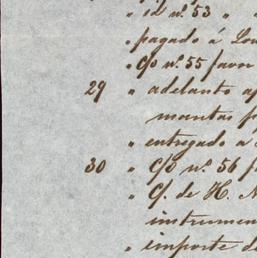 " id nº 53 "
" pagado á Lou
" C/o nº 55 favor
29 " adelanto af
mantas p
" entregado a
30 " C/o nº 56 f
" C. de H. A
instrumen
" importe de